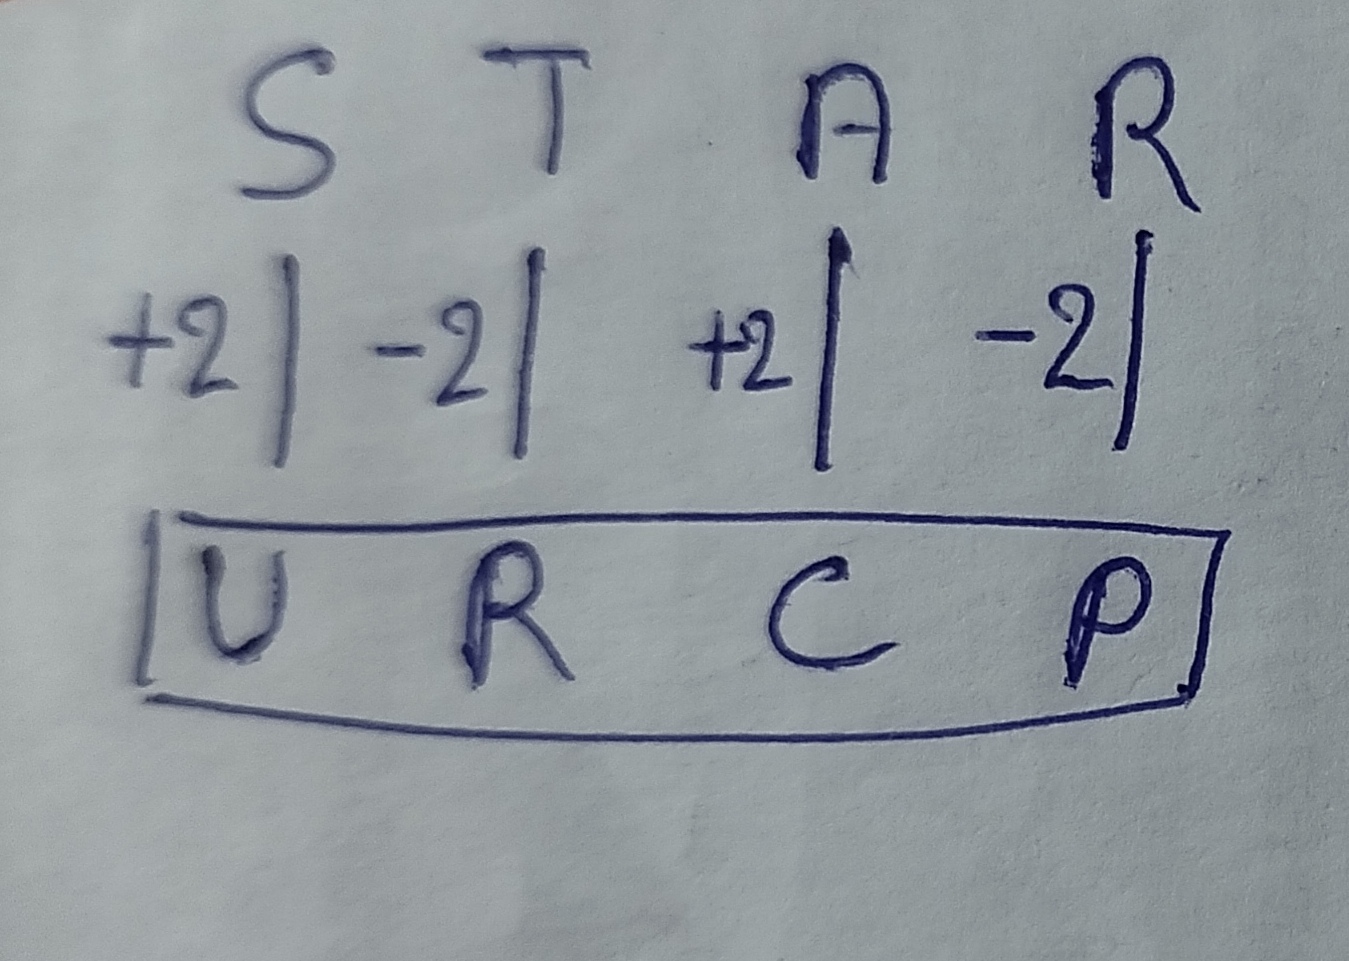 S T A R
+2| -2| +2| -2|
U R C P